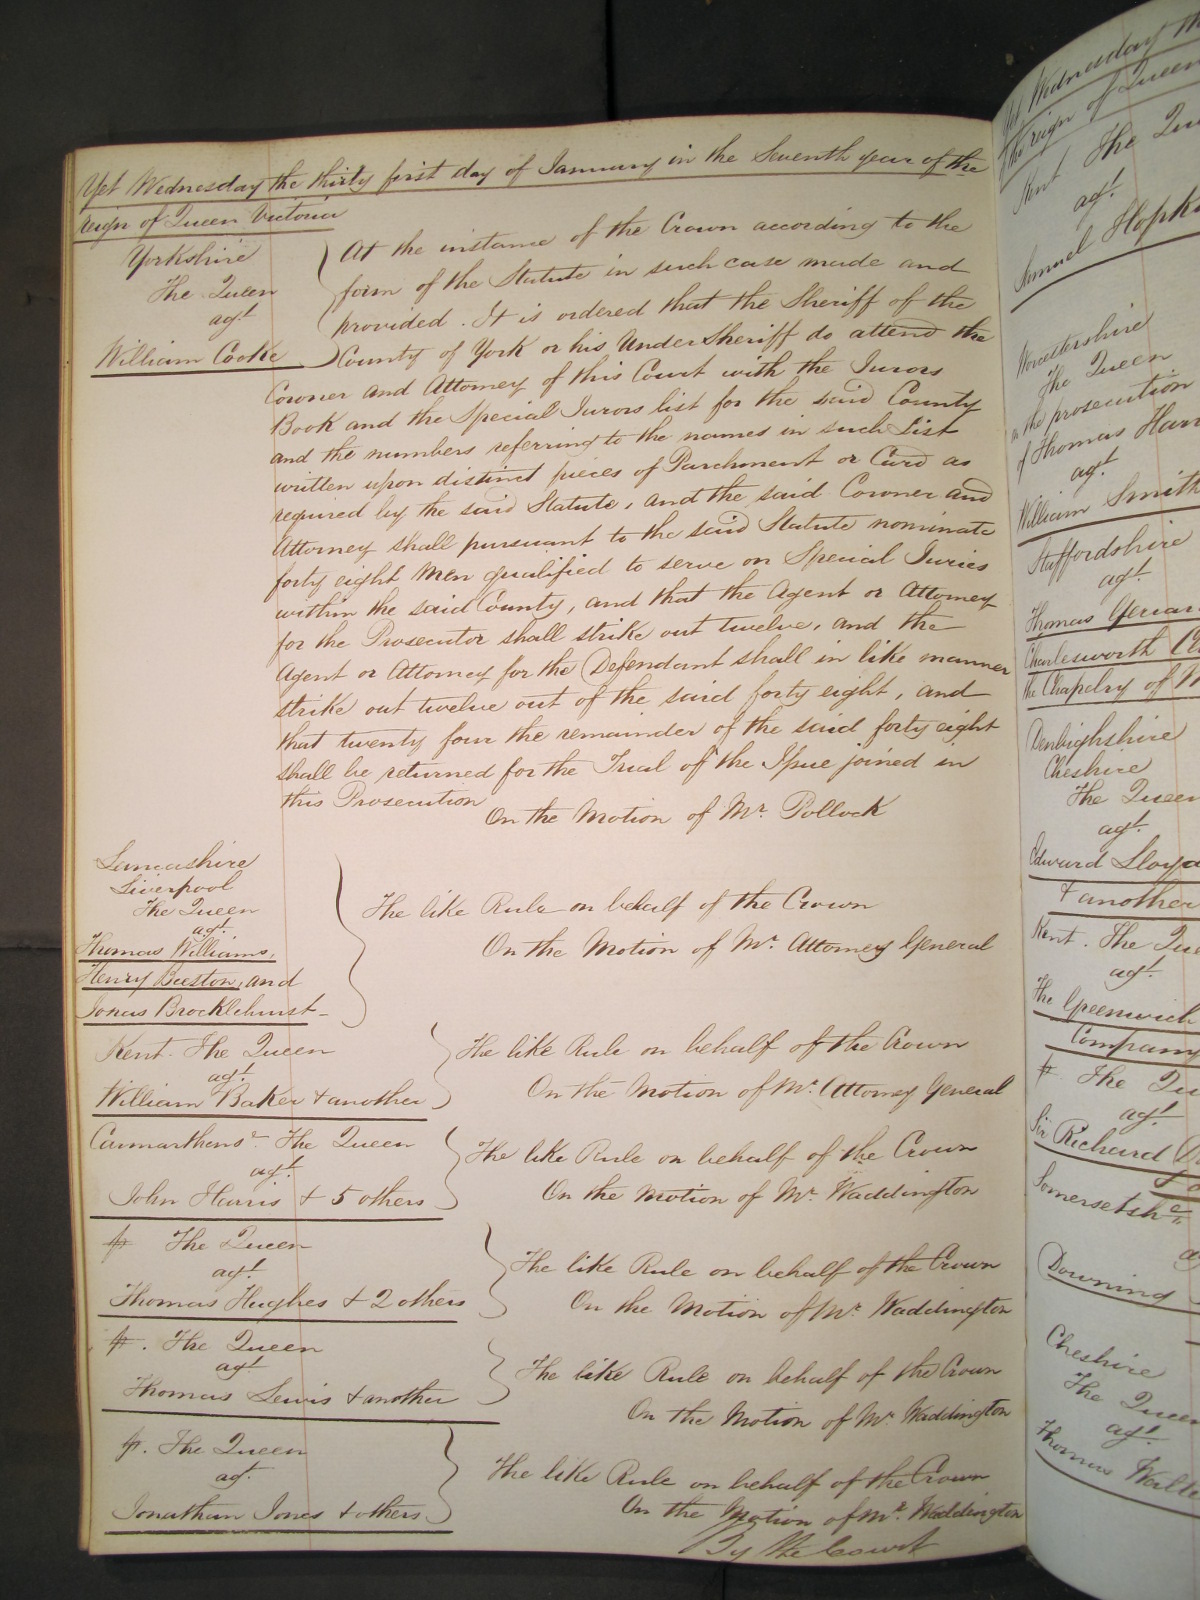 Yet Wednesday the thirty first day of January in the Seventh year of the
reign of Queen Victoria
Yorkshire
The Queen
agt.
William Cooke
At the instance of the Crown according to the
form of the Statute in such case made and
provided. It is ordered that the Sheriff of the
County of York or his Under Sheriff do attend the
Coroner and Attorney of this Court with the Jurors
Book and the Special Jurors list for the said County
and the numbers referring to the names in such List
written upon distinct pieces of Parchment or Card as
required by the said Statute, and the said Coroner and
Attorney shall pursuant to the said Statute nominate
forty eight Men qualified to serve on Special Juries
within the said County, and that the Agent or Attorney
for the Prosecutor shall strike out twelve, and the
Agent or Attorney for the Defendant shall in like manner
strike out twelve out of the said forty eight, and
that twenty four the remainder of the said forty eight
shall be returned for the Trial of the Issue joined in
this Prosecution
On the Motion of Mr. Pollock
Lancashire
Liverpool
The Queen
agt.
Thomas Williams,
Henry Beeston, and
Jonas Brocklehurst
The like Rule on behalf of the Crown
On the Motion of Mr. Attorney General
Kent. The Queen
agt.
William Baker & another
The like Rule on behalf of the Crown
On the Motion of Mr. Attorney General
Carmarthens. The Queen
agt.
John Harris & 5 others
The like Rule on behalf of the Crown
On the Motion of Mr. Waddington
The Queen
agt.
Thomas Hughes & 2 others
The like Rule on behalf of the Crown
On the Motion of Mr. Waddington
The Queen
agt.
Thomas Lewis & another
The like Rule on behalf of the Crown
On the Motion of Mr. Waddington
The Queen
agt.
Jonathan Jones & others
The like Rule on behalf of the Crown
On the Motion of Mr. Waddington
By the Court
Yet Wednesday
the reign of Queen
Kent The
agt.
Samuel
Worcestershire
The Queen
on the prosecution
of Thomas
agt.
William Smith
Staffordshire
agt.
Thomas
Charlesworth
the Chapelry of
Denbighshire
Cheshire
The Queen
agt.
Edward Lloyd
& another
Kent. The
agt.
The Greenwich
Company
The
agt.
Sir Richard
Somersetsh
Downing
Cheshire
The Queen
agt.
Thomas